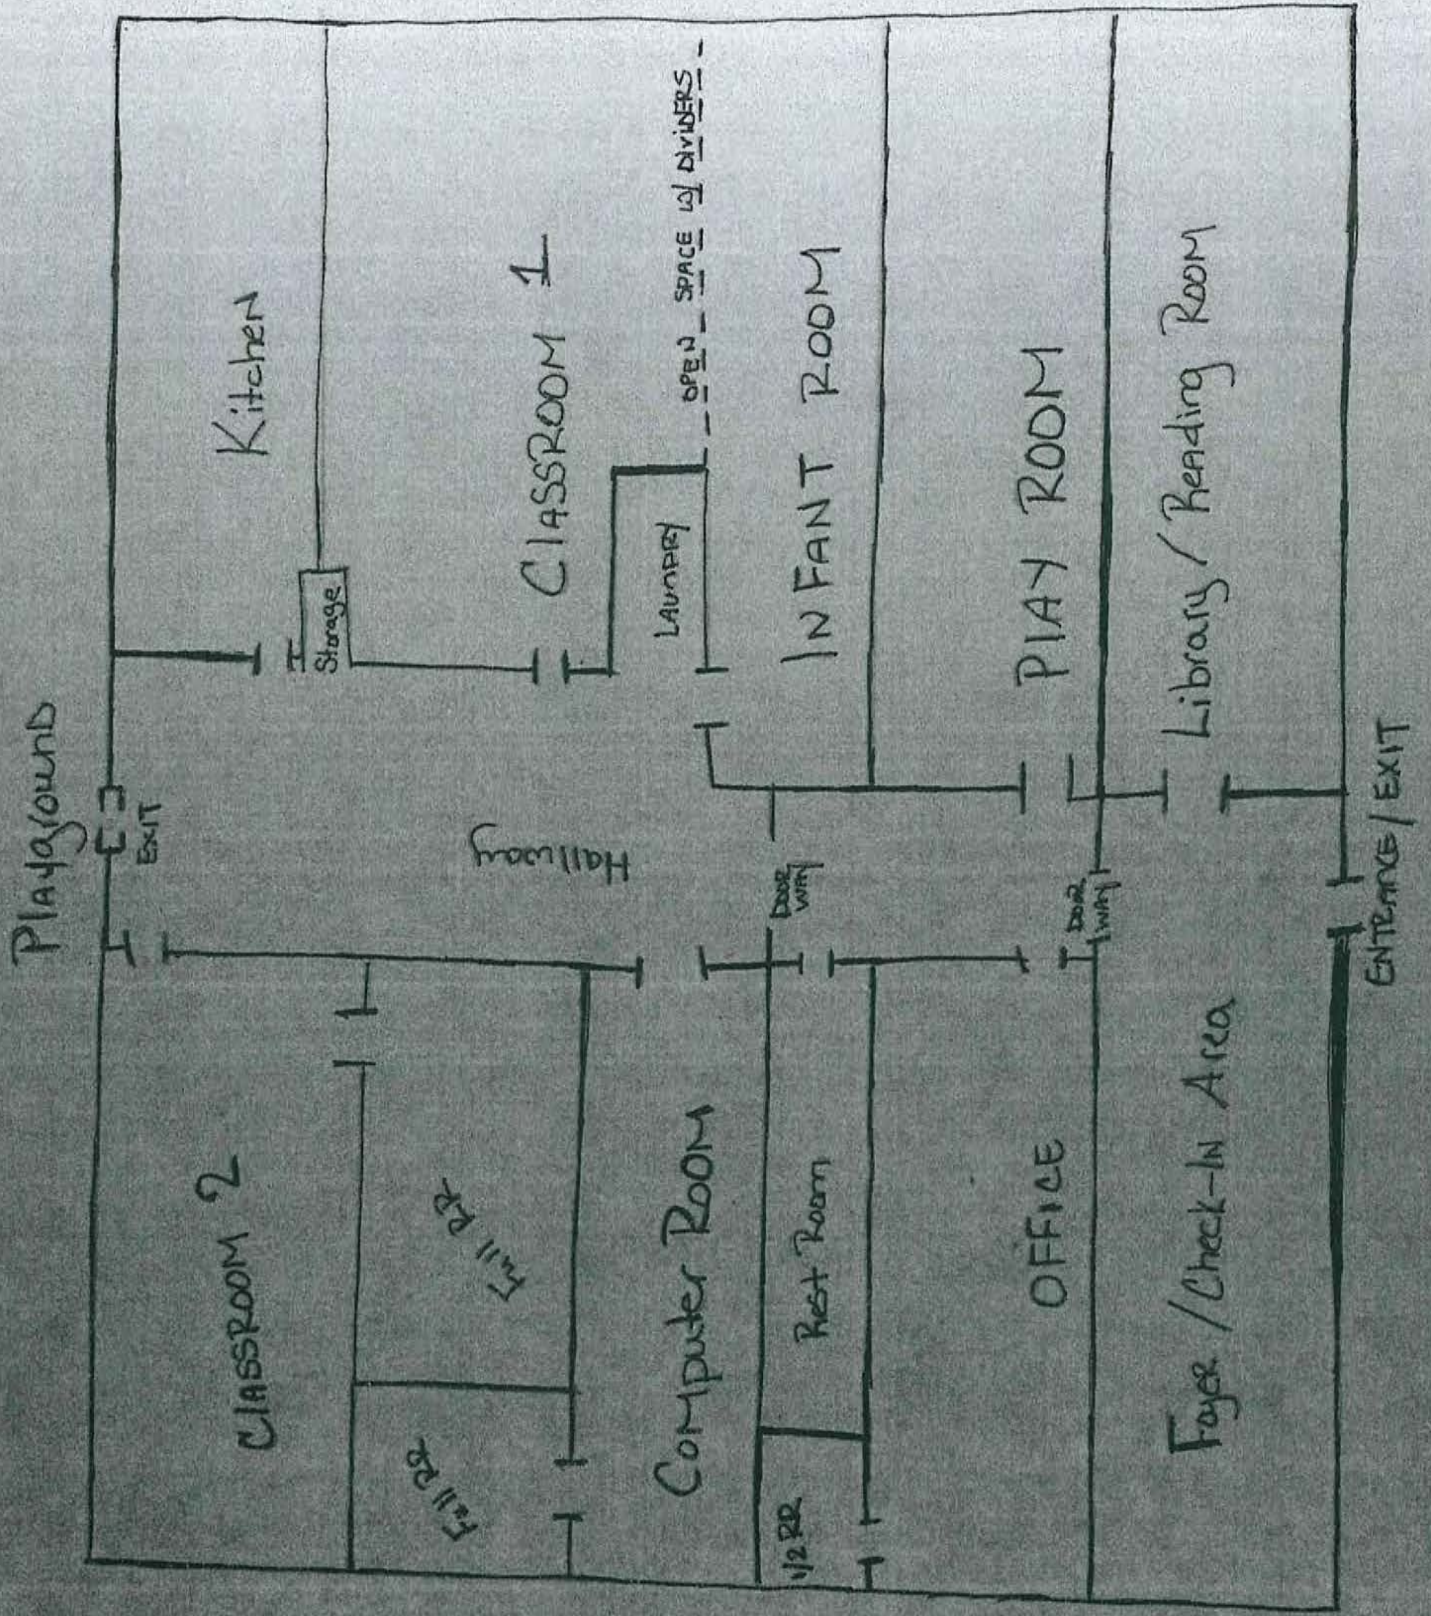 Playground
EXIT
Kitchen
Storage
CLASSROOM 1
LAUNDRY
OPEN SPACE W/ DIVIDERS
INFANT ROOM
PLAY ROOM
Library / Reading Room
Hallway
DOOR
WAY
DOOR
WAY
ENTRANCE / EXIT
CLASSROOM 2
Full RR
Full RR
Computer ROOM
Rest Room
1/2 RR
OFFICE
Foyer / Check-IN Area